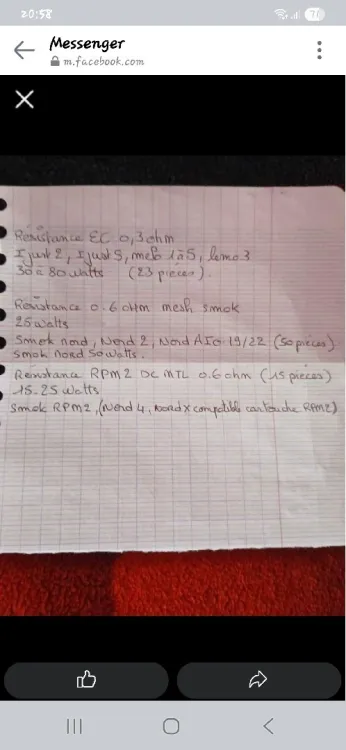 20:58
76
Messenger
m.facebook.com
Résistance EC 0,3 ohm
Ijust 2, Ijust S, melo 1 à 5, lemo 3
30 à 80 watts (23 pièces).
Résistance 0.6 ohm mesh smok
25 watts
Smok nord, Nord 2, Nord AIO 19/22 (50 pièces)
smok nord 50 watts.
Résistance RPM2 DC MTL 0.6 ohm (15 pièces)
15-25 watts
Smok RPM2, (Nord 4, Nord X compatible cartouche RPM2)